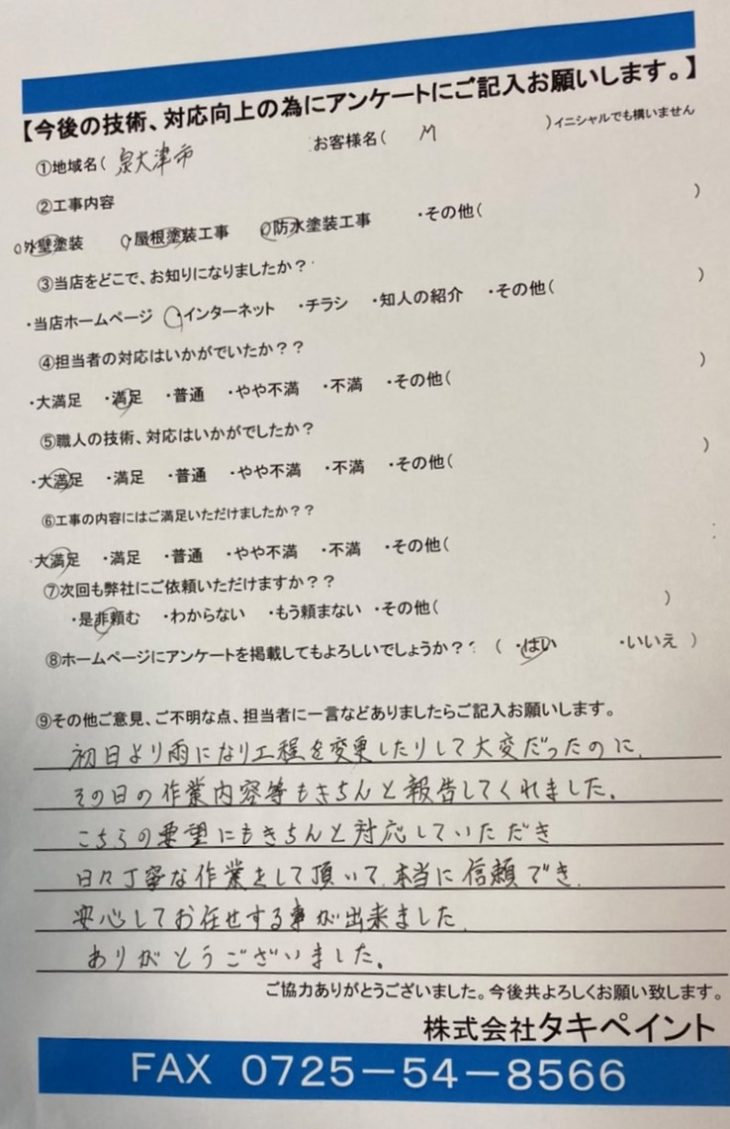 【今後の技術、対応向上の為にアンケートにご記入お願いします。】
①地域名( 泉大津市 お客様名( M )イニシャルでも構いません
②工事内容
○外壁塗装 ○屋根塗装工事 ○防水塗装工事 ・その他( )
③当店をどこで、お知りになりましたか?
・当店ホームページ ○インターネット ・チラシ ・知人の紹介 ・その他( )
④担当者の対応はいかがでいたか??
・大満足 ・満足 ・普通 ・やや不満 ・不満 ・その他( )
⑤職人の技術、対応はいかがでしたか?
・大満足 ・満足 ・普通 ・やや不満 ・不満 ・その他( )
⑥工事の内容にはご満足いただけましたか??
大満足 ・満足 ・普通 ・やや不満 ・不満 ・その他(
⑦次回も弊社にご依頼いただけますか??
・是非頼む ・わからない ・もう頼まない ・その他( )
⑧ホームページにアンケートを掲載してもよろしいでしょうか?? ( ・はい ・いいえ )
⑨その他ご意見、ご不明な点、担当者に一言などありましたらご記入お願いします。
初日より雨になり工程を変更したりして大変だったのに、
その日の作業内容等もきちんと報告してくれました。
こちらの要望にもきちんと対応していただき
日々丁寧な作業をして頂いて、本当に信頼でき、
安心してお任せする事が出来ました。
ありがとうございました。
ご協力ありがとうございました。今後共よろしくお願い致します。
株式会社タキペイント
FAX 0725-54-8566